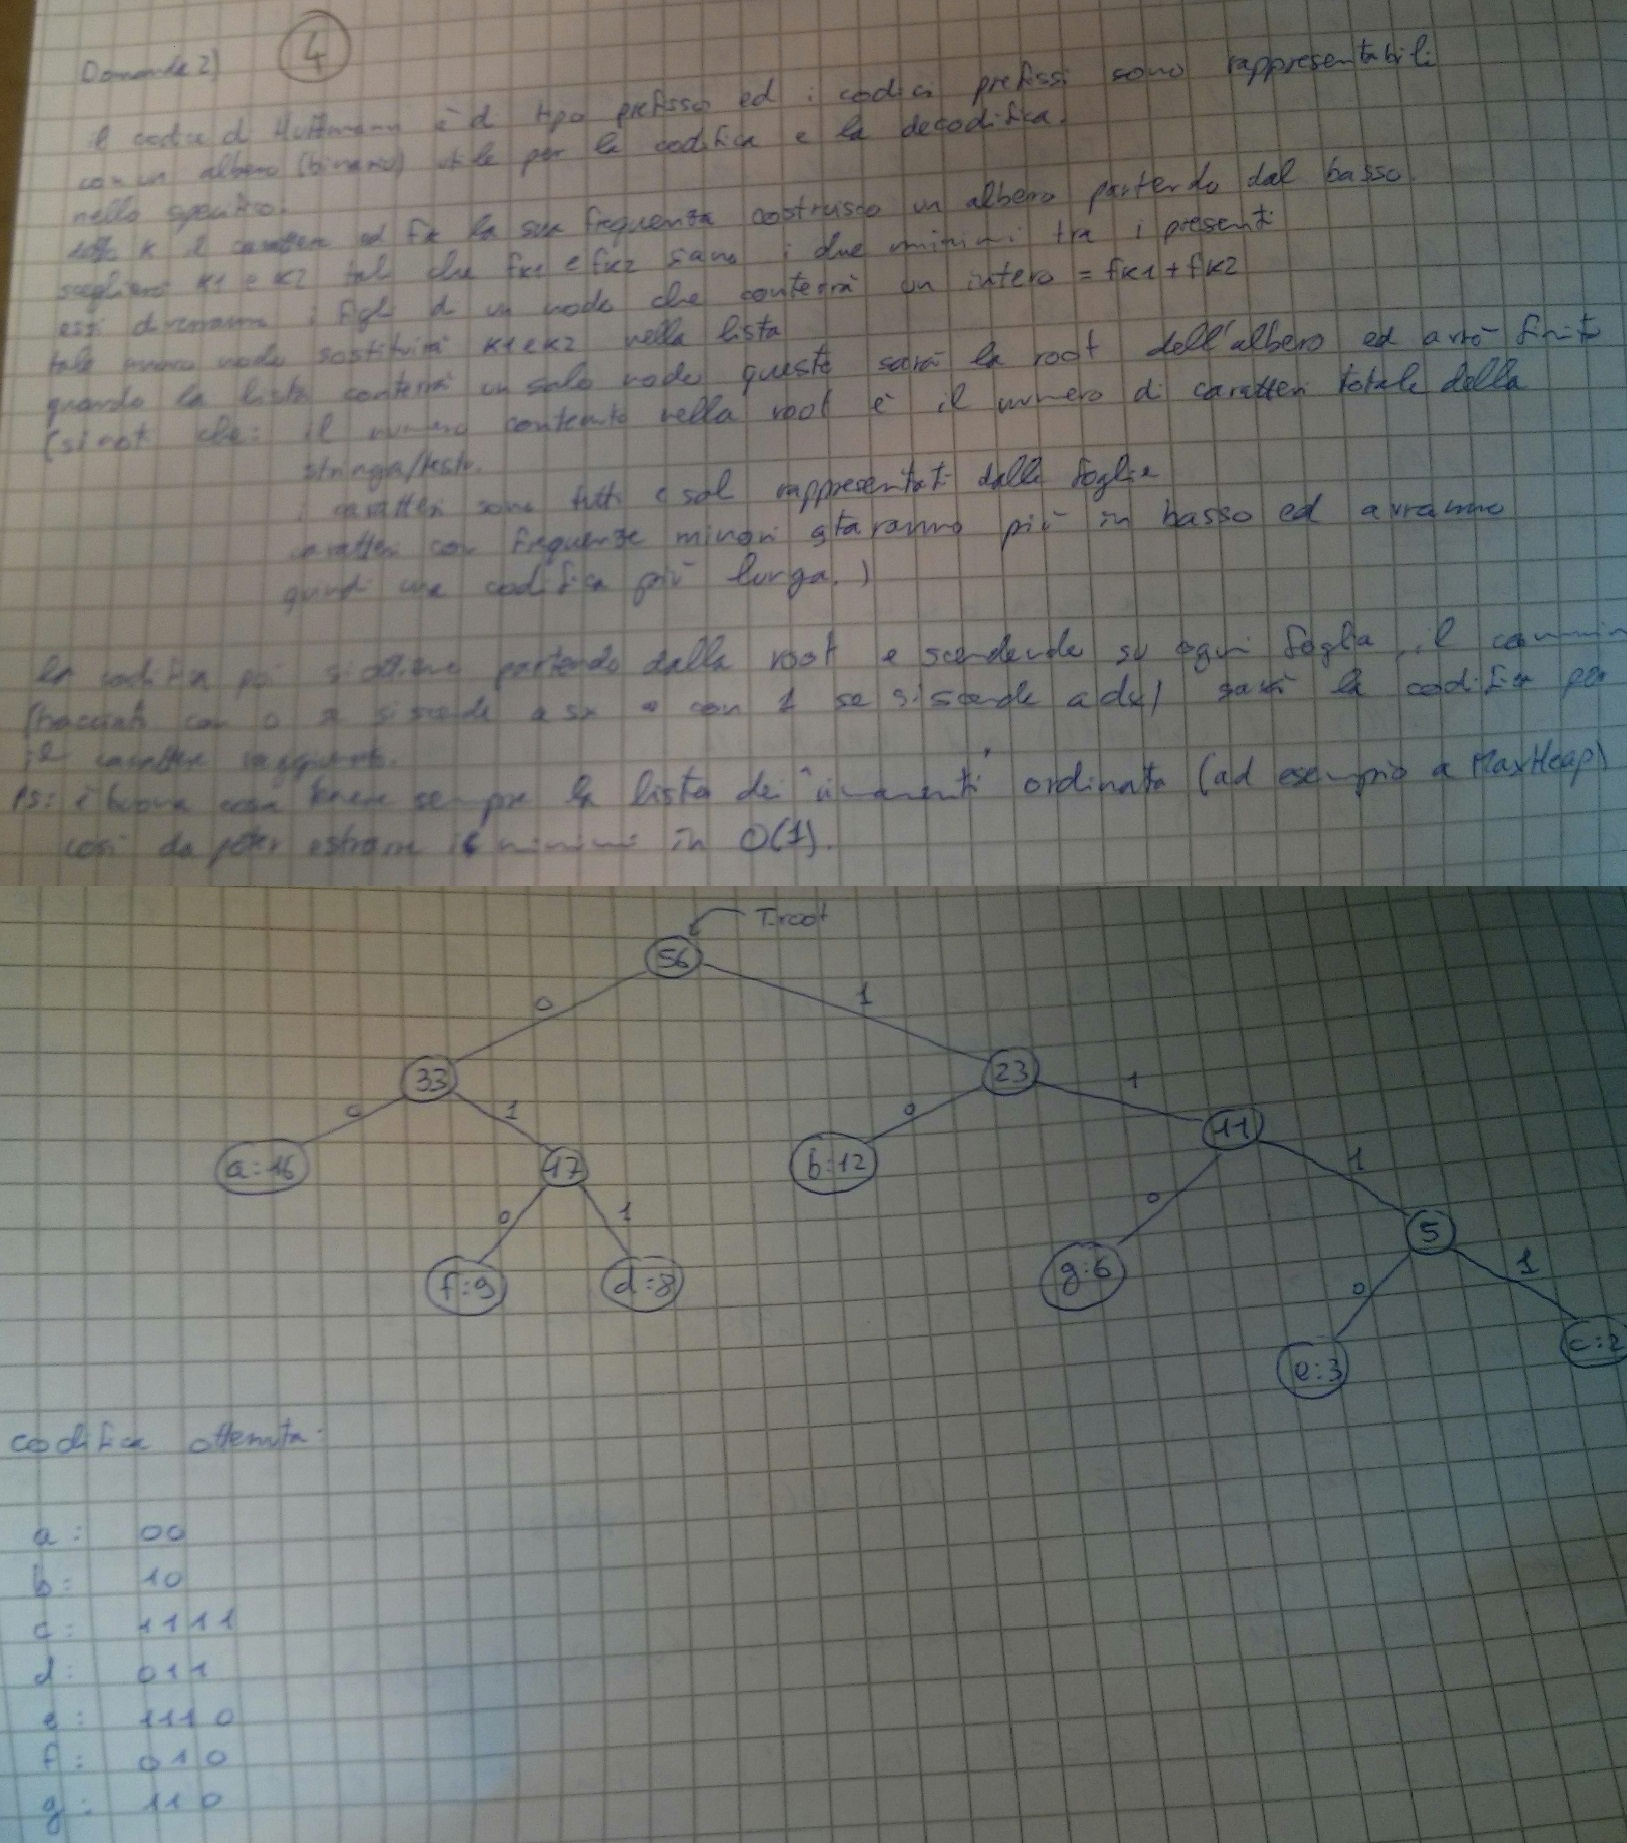 Domanda 2) 4
il codice di Huffmann è di tipo prefisso ed i codici prefissi sono rappresentabili
con un albero (binario) utile per la codifica e la decodifica.
nello specifico:
K il carattere ed fk la sua frequenza costruisco un albero partendo dal basso.
scegliero K1 e K2 tali che fK1 e fK2 siano i due minimi tra i presenti
essi diverranno i figli di un nodo che conterrà un intero = fK1 + fK2
tale nuovo nodo sostituirà K1 e K2 nella lista
quando la lista conterrà un solo nodo questo sarà la root dell'albero ed avrò finito
(si noti che: il numero contenuto nella root è il numero di caratteri totale della
stringa/testo.
i caratteri sono tutti e soli rappresentati dalle foglie
caratteri con frequenze minori staranno più in basso ed avranno
quindi una codifica più lunga.)
la codifica poi si ottiene partendo dalla root e scendendo su ogni foglia, il cammin
(tracciato con 0 se si scende a sx e con 1 se si scende a dx) sarà la codifica per
il carattere raggiunto.
PS: è buona cosa tenere sempre la lista dei rimanenti ordinata (ad esempio a MaxHeap)
così da poter estrarre i minimi in O(1).
T.root
56
0 1
33 23
0 1 0 1
a:16 17 b:12 11
0 1 0 1
f:9 d:8 g:6 5
0 1
e:3 c:2
codifica ottenuta:
a: 00
b: 10
c: 1111
d: 011
e: 1110
f: 010
g: 110